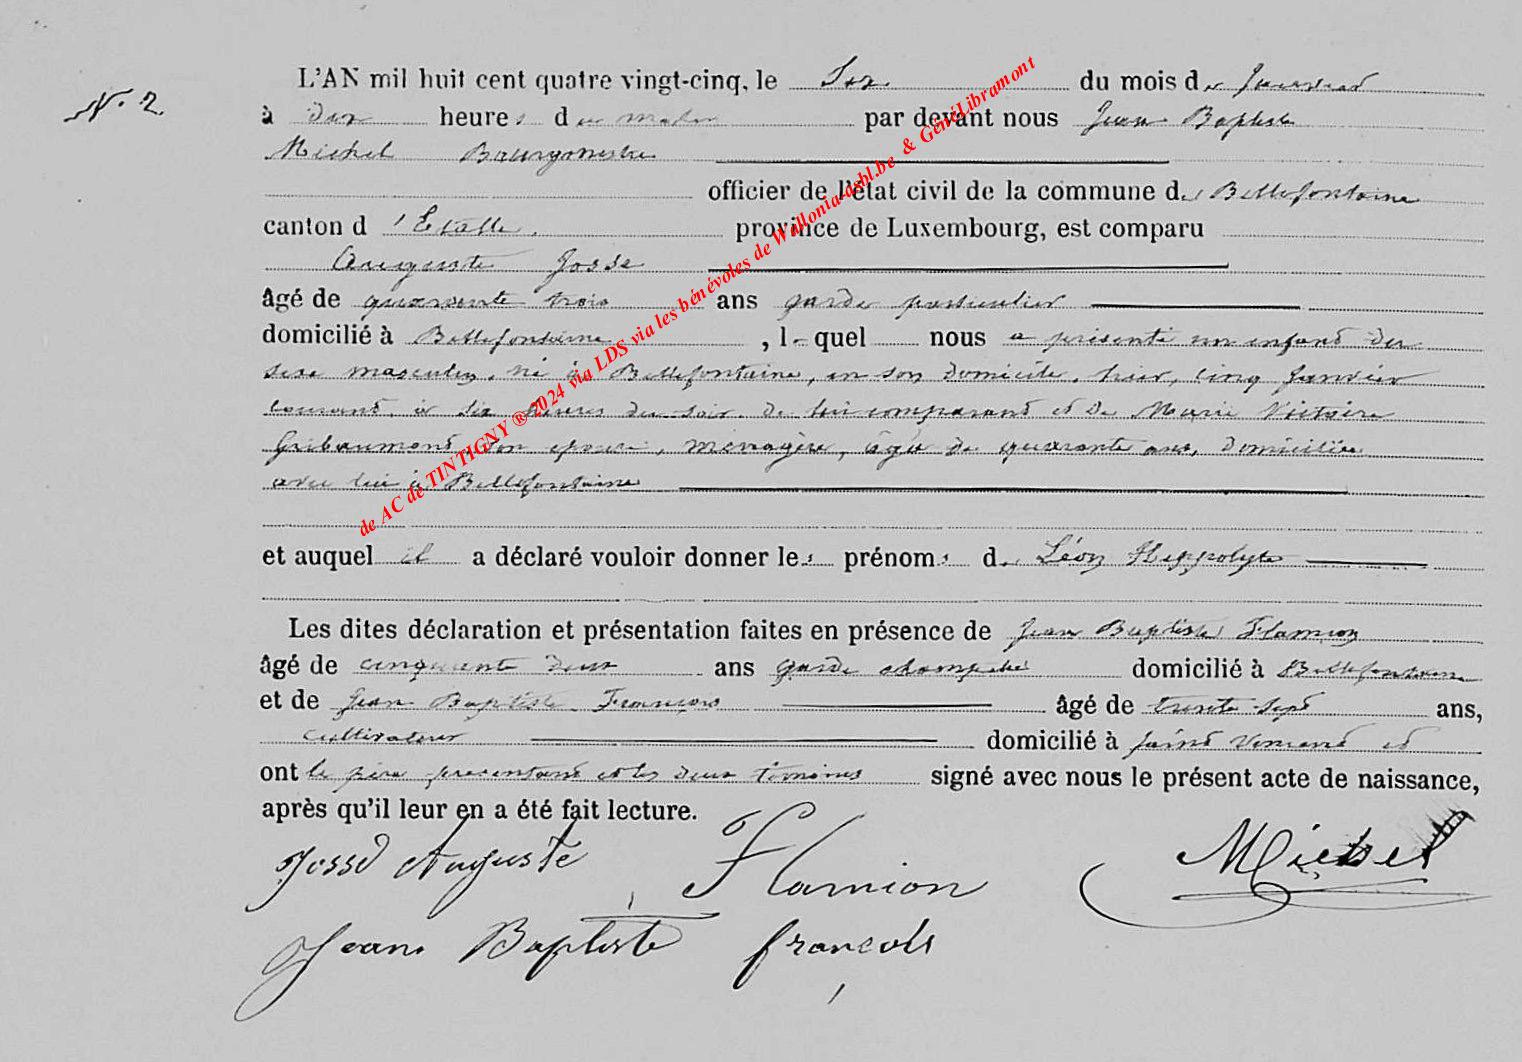 N° 2
L'AN mil huit cent quatre vingt-cinq, le Six du mois de Janvier
à dix heures du matin par devant nous Jean Baptiste
Michel Bourgmestre
officier de l'état civil de la commune de Bellefontaine
canton d'Etalle, province de Luxembourg, est comparu
Auguste Josse
âgé de quarante trois ans garde particulier
domicilié à Bellefontaine, lequel nous a présenté un enfant du
sexe masculin, né à Bellefontaine, en son domicile, hier, cinq Janvier
courant, à six heures du soir de lui comparant et de Marie Victoire
Gribaumont, son épouse, ménagère, âgée de quarante ans, domiciliée
avec lui à Bellefontaine
et auquel il a déclaré vouloir donner les prénoms de Léon Hippolyte
Les dites déclaration et présentation faites en présence de Jean Baptiste Flamion
âgé de cinquante deux ans garde champêtre domicilié à Bellefontaine
et de Jean Baptiste François âgé de trente-sept ans,
cultivateur domicilié à Saint Vincent et
ont le père présentant et les deux témoins signé avec nous le présent acte de naissance,
après qu'il leur en a été fait lecture.
Josse Auguste Flamion Michel
Jean Baptiste françois
de AC de TINTIGNY ® 2024 via LDS via les bénévoles de Wallonia-asbl.be & GénéLibramont